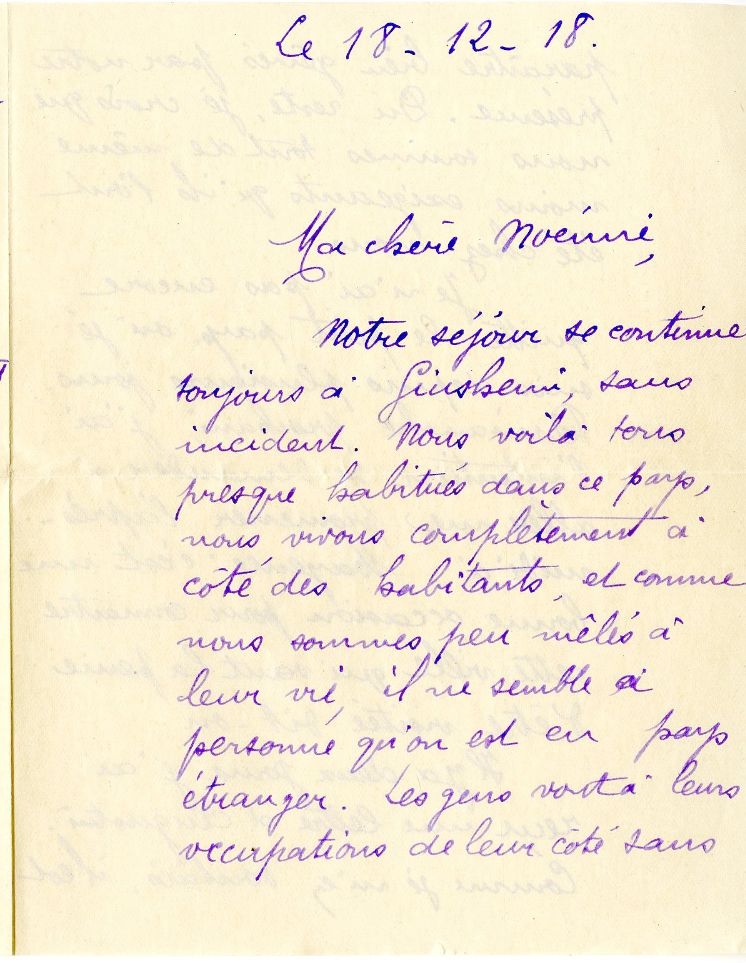 Le 18-12-18.
Ma chère Noémie,
Notre séjour se continue
toujours à Ginsheim, sans
incident. Nous voilà tous
presque habitués dans ce pays,
nous vivons complètement à
côté des habitants, et comme
nous sommes peu mêlés à
leur vie, il ne semble à
personne qu'on est en pays
étranger. Les gens vont à leurs
occupations de leur côté sans